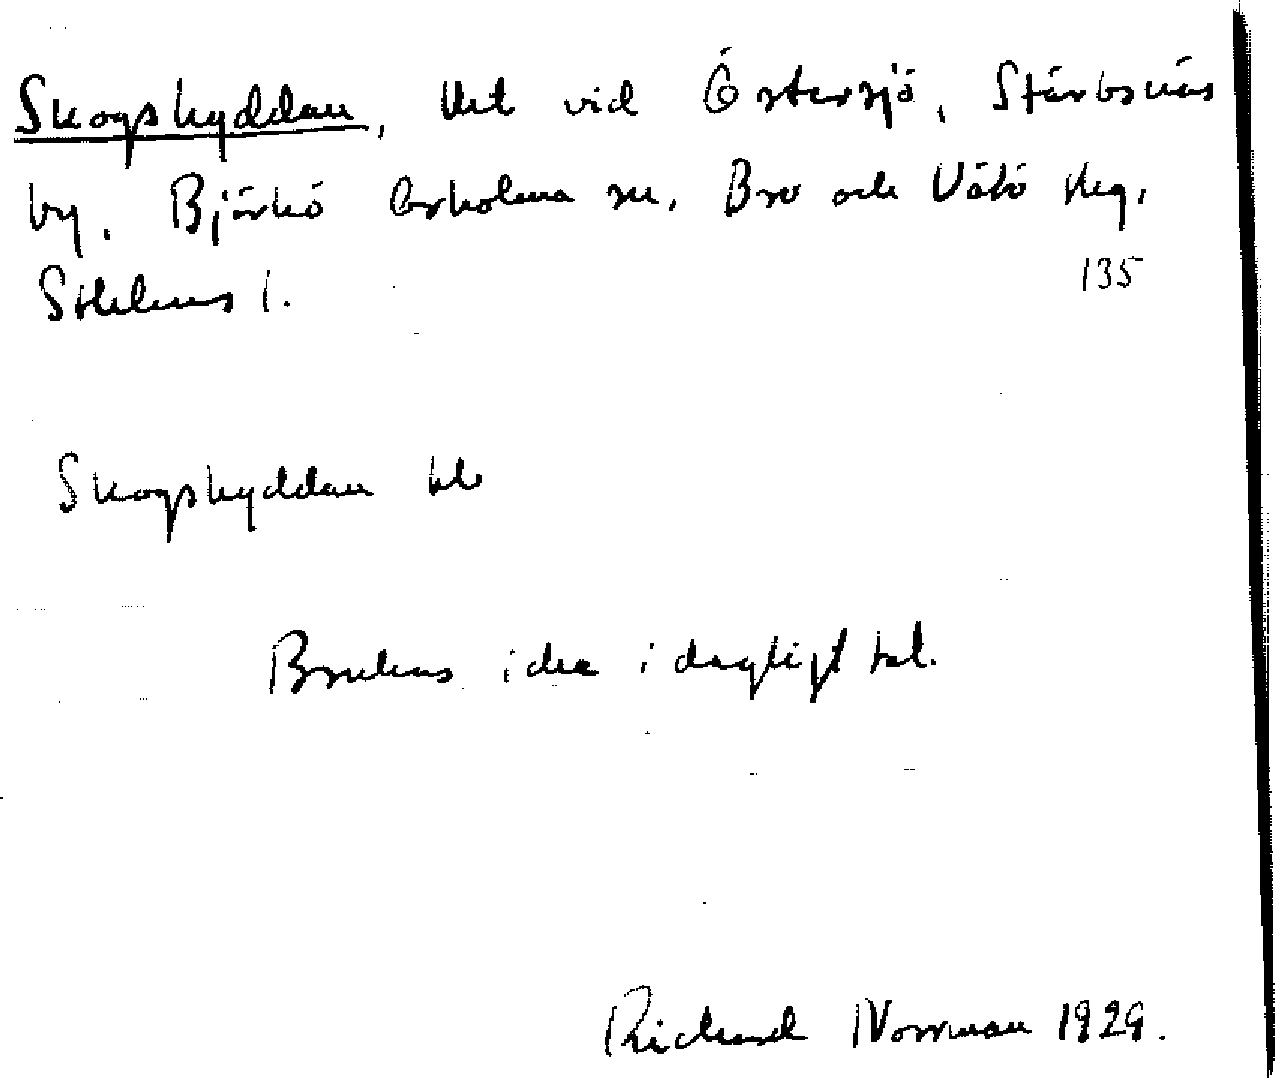 Skogshyddan, lht vid Östersjö, Stärbsnäs
by, Björkö Arholma sn, Bro och Vätö skg,
Sthlms l.
135
Skogshyddan
Brukas icke i dagligt tal.
Richard Norrman 1929.